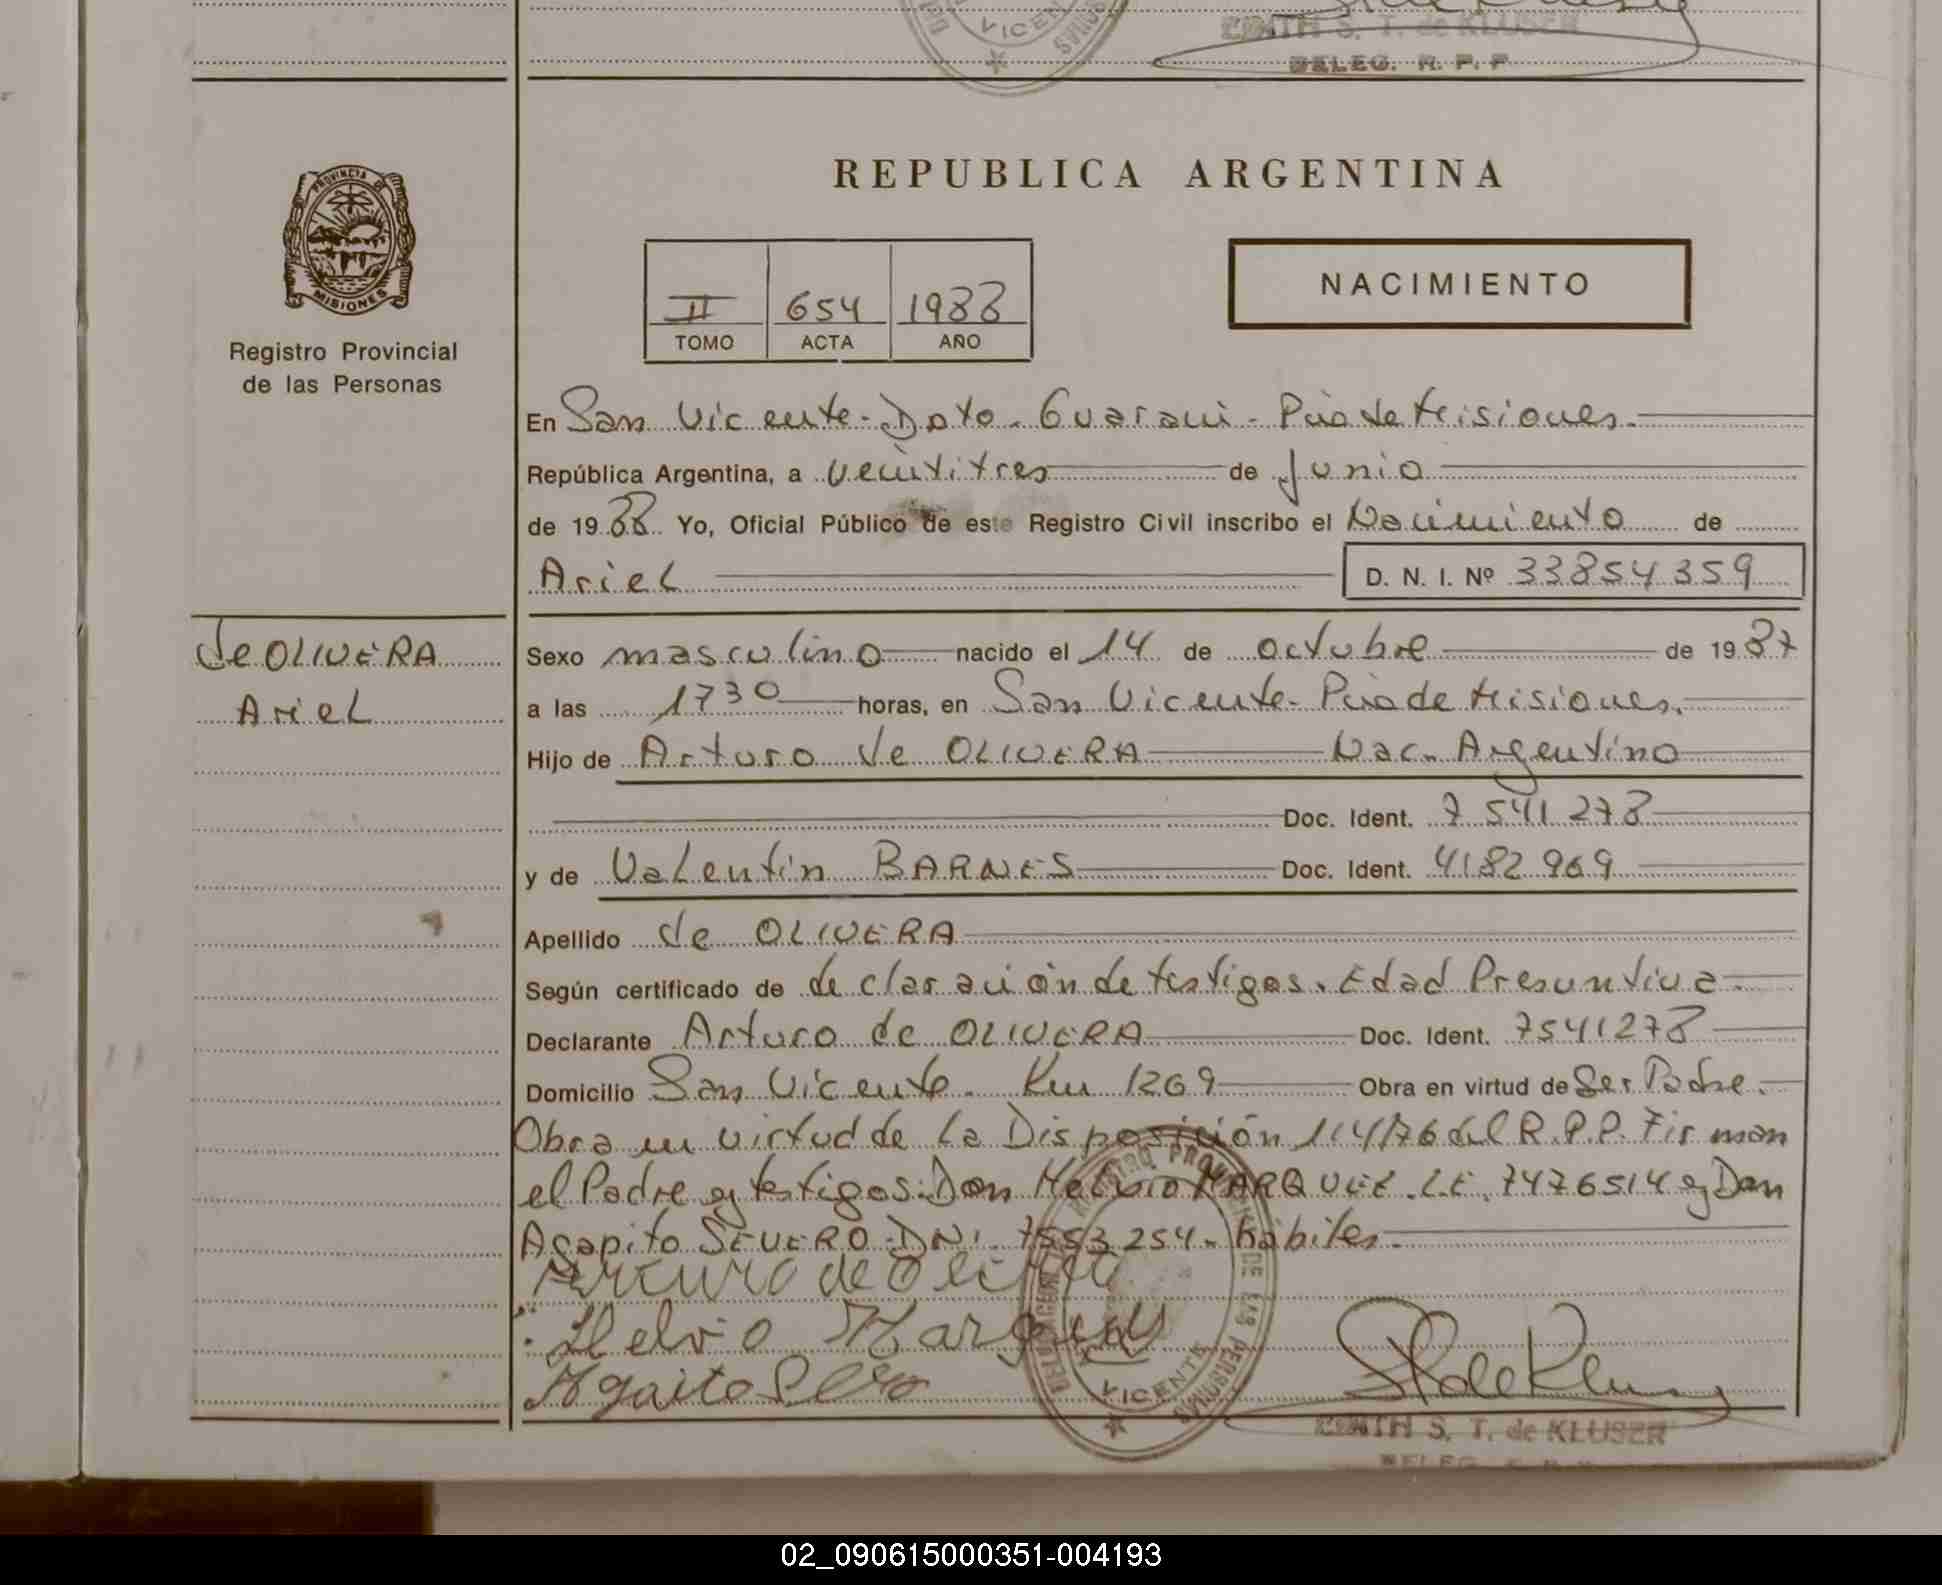 VICEN
EDITH S. T. de KLUSER
DELEG. R. P. P
PROVINCIA DE
MISIONES
Registro Provincial
de las Personas
REPUBLICA ARGENTINA
II 654 1988
TOMO ACTA AÑO
NACIMIENTO
En San Vicente - Dpto. Guarani - Pcia de Misiones.
República Argentina, a veintitres de Junio
de 1988 Yo, Oficial Público de este Registro Civil inscribo el Nacimiento de
Ariel D. N. I. Nº 33854359
de OLIVERA
Ariel
Sexo masculino nacido el 14 de octubre de 1987
a las 1730 horas, en San Vicente - Pcia de Misiones.
Hijo de Arturo de OLIVERA Nac. Argentino
Doc. Ident. 7541278
y de Valentin BARNES Doc. Ident. 4182969
Apellido de OLIVERA
Según certificado de declaración de testigos. Edad Presuntiva.
Declarante Arturo de OLIVERA Doc. Ident. 7541278
Domicilio San Vicente. Km 1269 Obra en virtud de Ser Padre.
Obra en virtud de la Disposición 114/76 del R.P.P. Firman
el Padre y testigos: Don Helvio MARQUEZ. L.E. 7476514 y Don
Agapito SEVERO DNI. 7553254. hábiles.
Arturo de Olivera
Helvio Marques
VICENTE
EDITH S. T. de KLUSER
02_090615000351-004193